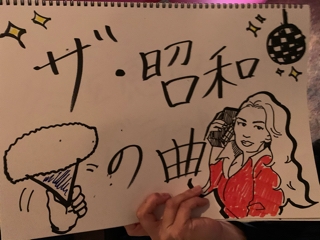 ザ・昭和
の曲